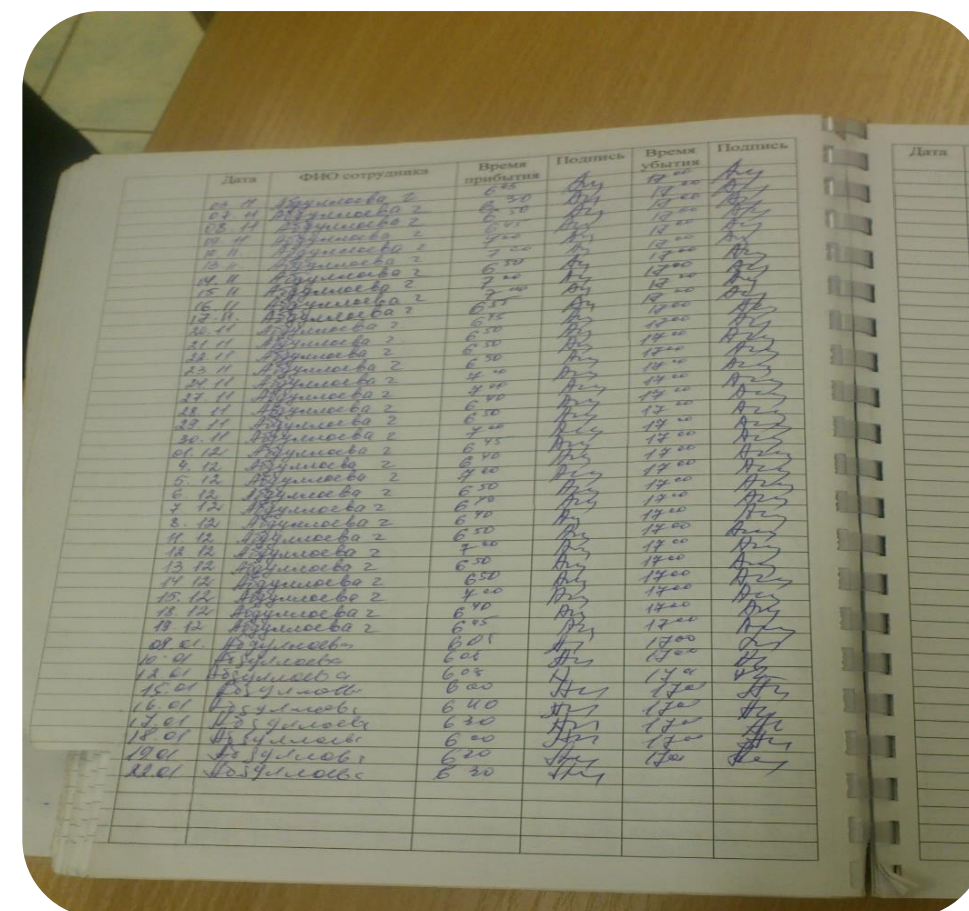 Дата ФИО сотрудника Время прибытия Подпись Время убытия Подпись Дата
03 11 Абдуллоева г 6 45 17 00
07 11 Абдуллоева г 6 30 17 00
08. 11 Абдуллоева г 6 50 17 00
09 11 Абдуллоева г 6 45 17 00
10 11. Абдуллоева г 7 00 17 00
13 11 Абдуллоева г 7 00 17 00
14. 11 Абдуллоева г 6 50 17 00
15 11 Абдуллоева г 7 00 17 00
16 11 Абдуллоева г 7 00 17 00
17. 11. Абдуллоева г 6 55 17 00
20. 11 Абдуллоева г 6 45 17 00
21 11 Абдуллоева г 6 50 17 00
22 11 Абдуллоева г 6 50 17 00
23 11 Абдуллоева г 6 50 17 00
24 11 Абдуллоева г 7 00 17 00
27 11 Абдуллоева г 7 00 17 00
28. 11 Абдуллоева г 6 40 17 00
29. 11 Абдуллоева г 6 50 17 00
30. 11 Абдуллоева г 7 00 17 00
01. 12 Абдуллоева г 6 45 17 00
4. 12 Абдуллоева г 6 40 17 00
5. 12 Абдуллоева г 7 00 17 00
6. 12 Абдуллоева г 6 50 17 00
7 12 Абдуллоева г 6 40 17 00
8. 12 Абдуллоева г 6 40 17 00
11. 12 Абдуллоева г 6 50 17 00
12 12 Абдуллоева г 7 00 17 00
13 12 Абдуллоева г 6 50 17 00
14 12 Абдуллоева г 6 50 17 00
15. 12 Абдуллоева г 7 00 17 00
18. 12 Абдуллоева г 6 40 17 00
19 12 Абдуллоева г 6 45 17 00
09. 01. Абдуллоева 6 05 17 00
10. 01 Абдуллоева 6 08 17 00
12 01 Абдуллоева 6 05 17
15. 01 Абдуллоева 6 00 17 0
16. 01 Абдуллоева 6 40 17 0
17. 01 Абдуллоева 6 30 17
18. 01 Абдуллоева 6 00 17
19 01 Абдуллоева 6 20 17
22 01 Абдуллоева 6 30